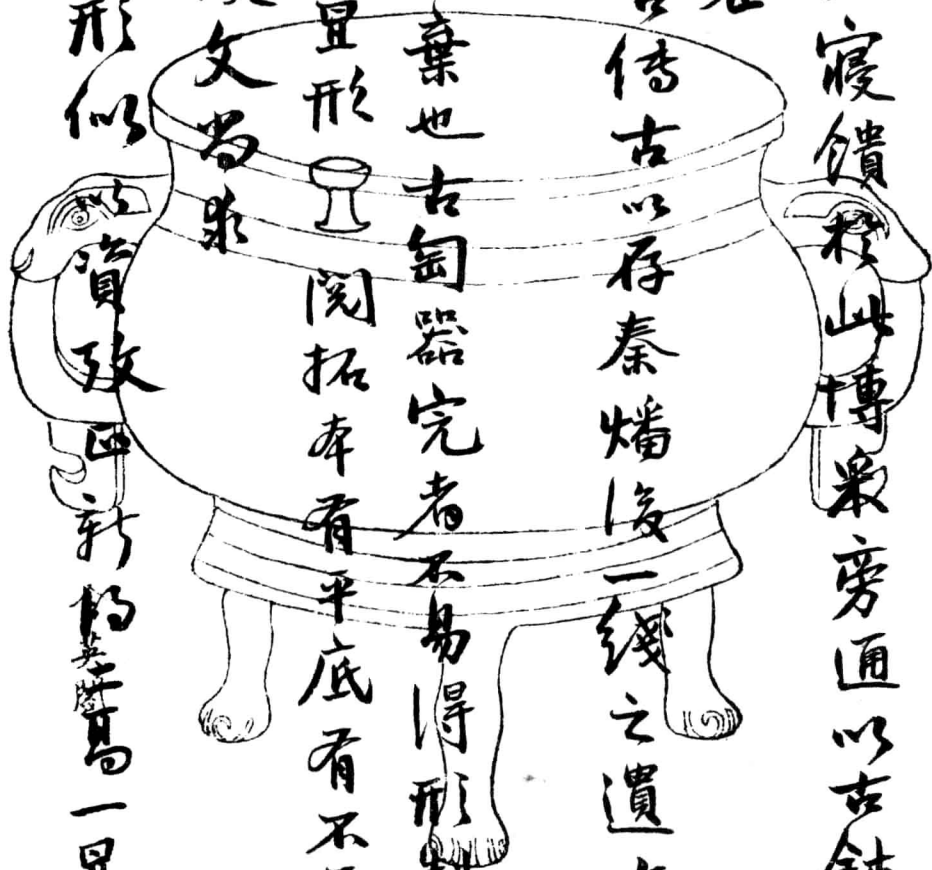 寢饋於此博采旁通以古鉢
傳古以存秦燔後一綫之遺
棄也古匋器完者不易得形制
豆形 閱拓本有平底有不
文尚求
形似以資攷正新得二鬲一